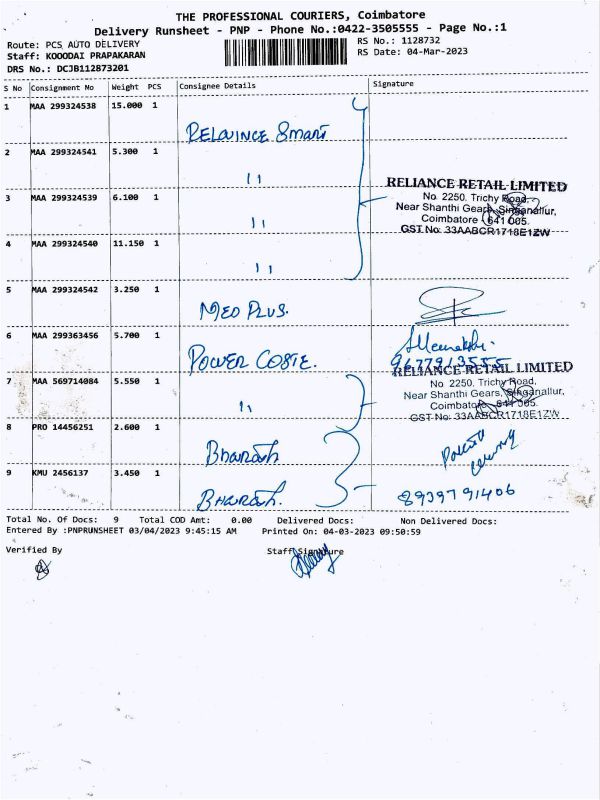 THE PROFESSIONAL COURIERS, Coimbatore
Delivery Runsheet - PNP - Phone No.:0422-3505555 - Page No.:1
Route: PCS AUTO DELIVERY
RS No.: 1128732
Staff: KOOODAI PRAPAKARAN
RS Date: 04-Mar-2023
DRS No.: DCJB112873201
S No Consignment No Weight PCS Consignee Details Signature
1 MAA 299324538 15.000 1
RELAINCE Smart
2 MAA 299324541 5.300 1
11
3 MAA 299324539 6.100 1
11
4 MAA 299324540 11.150 1
11
RELIANCE RETAIL LIMITED
No. 2250, Trichy Road,
Near Shanthi Gears, Singanallur,
Coimbatore - 641 005.
GST No: 33AABCR1718E1ZW
5 MAA 299324542 3.250 1
MED PLUS.
6 MAA 299363456 5.700 1
POWER
9677913555
7 MAA 569714084 5.550 1
11
RELIANCE RETAIL LIMITED
No. 2250, Trichy Road,
Near Shanthi Gears, Singanallur,
Coimbatore - 641 005.
GST No: 33AABCR1718E1ZW
8 PRO 14456251 2.600 1
Bharath
9 KMU 2456137 3.450 1
BHARATH.
8939791406
Total No. Of Docs: 9 Total COD Amt: 0.00 Delivered Docs: Non Delivered Docs:
Entered By :PNPRUNSHEET 03/04/2023 9:45:15 AM Printed On: 04-03-2023 09:50:59
Verified By Staff Signature